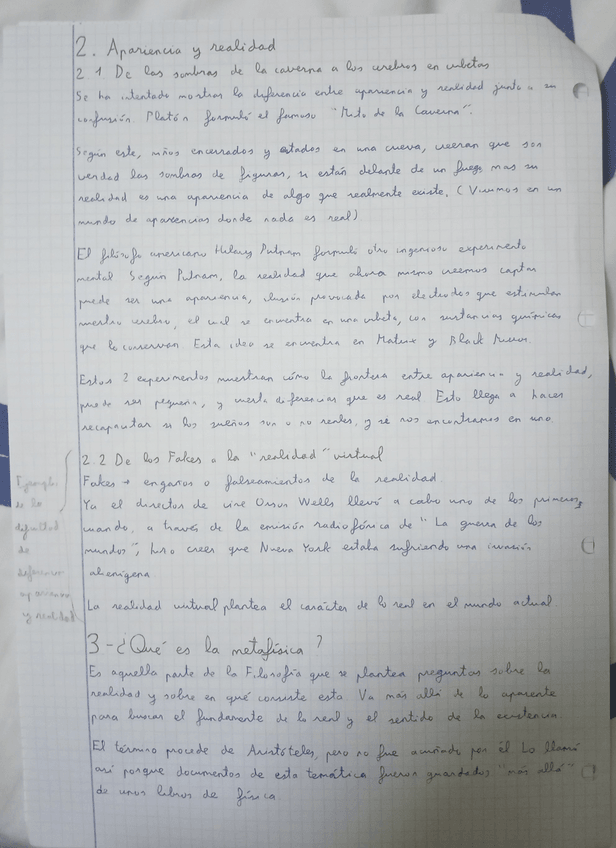 2. Apariencia y realidad
2.1 De las sombras de la caverna a los cerebros en cubetas
Se ha intentado mostrar la diferencia entre apariencia y realidad junto a su
confusión. Platón formuló el famoso "Mito de la Caverna".
Según este, niños encerrados y atados en una cueva, creerán que son
verdad las sombras de figuras, si están delante de un fuego mas su
realidad es una apariencia de algo que realmente existe. (Vivimos en un
mundo de apariencias donde nada es real)
El filósofo americano Hilary Putnam formuló otro ingenioso experimento
mental. Según Putnam, la realidad que ahora mismo creemos captar
puede ser una apariencia, ilusión provocada por electrodos que estimulan
nuestro cerebro, el cual se encuentra en una cubeta, con sustancias químicas
que lo conservan. Esta idea se encuentra en Matrix y Black Mirror.
Estos 2 experimentos muestran cómo la frontera entre apariencia y realidad,
puede ser pequeña, y cuesta diferenciar que es real. Esto llega a hacer
recapacitar si los sueños son o no reales, y si nos encontramos en uno.
2.2 De los Fakes a la "realidad" virtual
Fakes → engaños o falseamientos de la realidad.
Ya el director de cine Orson Wells llevó a cabo uno de los primeros,
cuando, a través de la emisión radiofónica de "La guerra de los
mundos", hizo creer que Nueva York estaba sufriendo una invasión
alienígena
La realidad virtual plantea el carácter de lo real en el mundo actual.
Ejemplo
de la
dificultad
de
diferenciar
apariencia
y realidad
3-¿Qué es la metafísica?
Es aquella parte de la Filosofía que se plantea preguntas sobre la
realidad y sobre en qué consiste esta. Va más allá de lo aparente
para buscar el fundamento de lo real y el sentido de la existencia.
El término procede de Aristóteles, pero no fue acuñado por él. Lo llamó
así porque documentos de esta temática fueron guardados "más allá"
de unos libros de física.